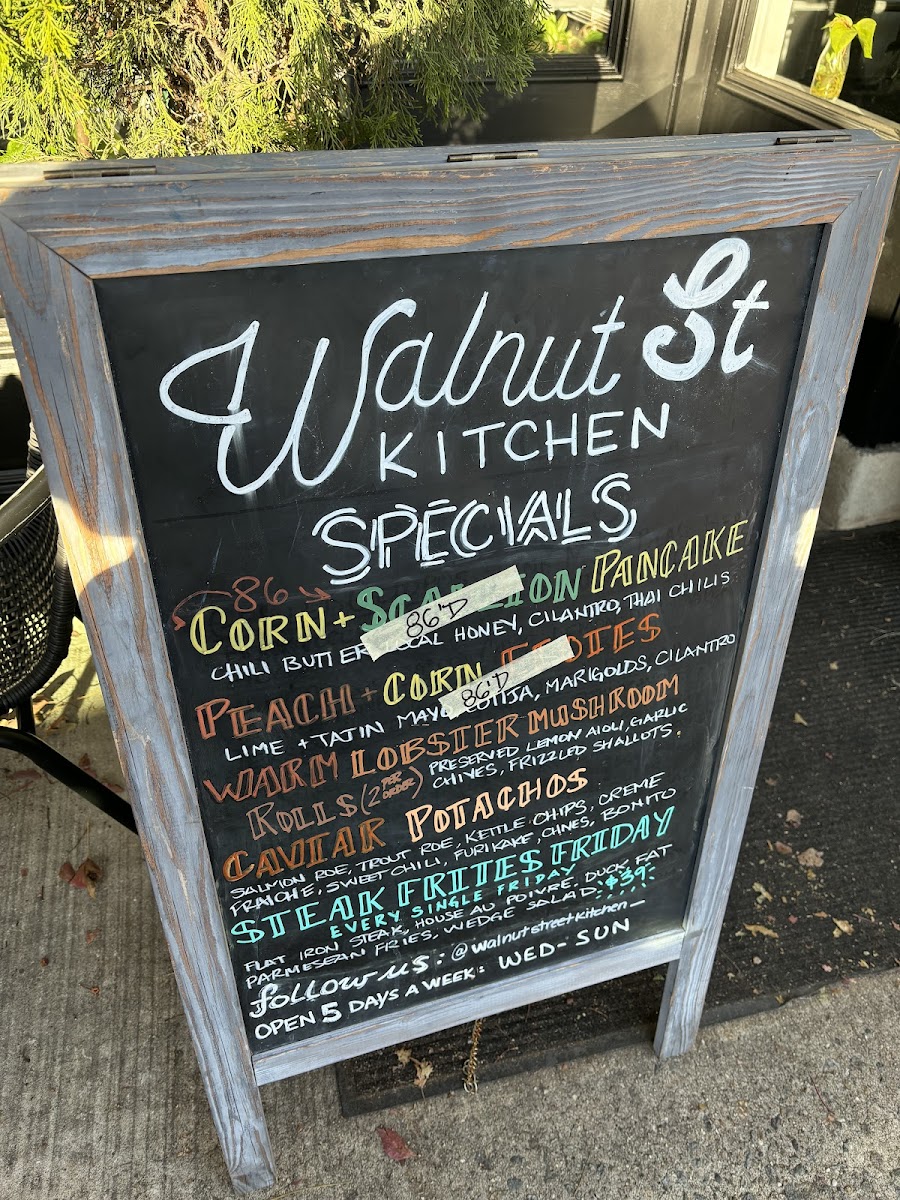 Walnut St
KITCHEN
SPECIALS
86
CORN + SCALLION PANCAKE
86'D
CHILI BUTTER, LOCAL HONEY, CILANTRO, THAI CHILIS
PEACH + CORN
86'D
LIME + TAJIN MAYO, COTIJA, MARIGOLDS, CILANTRO
WARM LOBSTER MUSHROOM
ROLLS (2 PER ORDER) PRESERVED LEMON AIOLI, GARLIC
CHIVES, FRIZZLED SHALLOTS.
CAVIAR POTACHOS
SALMON ROE, TROUT ROE, KETTLE CHIPS, CREME
FRAICHE, SWEET CHILI, FURIKAKE, CHIVES, BONITO
STEAK FRITES FRIDAY
EVERY SINGLE FRIDAY
FLAT IRON STEAK, HOUSE AU POIVRE, DUCK FAT
PARMESEAN FRIES, WEDGE SALAD $39
follow us: @walnutstreetkitchen
OPEN 5 DAYS A WEEK: WED-SUN